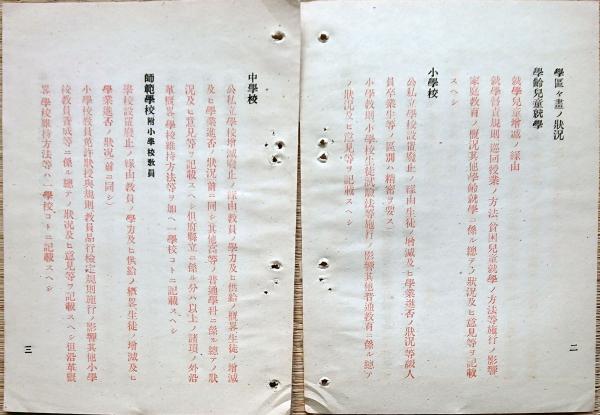 學區ヲ畫ノ狀況
學齡兒童就學
就學兒童增減ノ緣由
就學督責規則巡回授業ノ方法貧困兒童就學ノ方法等施行ノ影響
家庭教育ノ槪況其他學齡就學ニ係ル總テノ狀況及ヒ意見等ヲ記載
スヘシ
小學校
公私立學校設置廢止ノ緣由生徒ノ增減及ヒ學業進否ノ狀況等級人
員卒業生等ノ區別ハ精密ヲ要ス
小學教則小學校生徒試驗法等施行ノ影響其他普通教育ニ係ル總テ
ノ狀況及ヒ意見等ヲ記載スヘシ
二
中學校
公私立學校增減廢止ノ緣由教員ノ學力及ヒ供給ノ槪畧生徒ノ增減
及ヒ學業進否ノ狀況前ニ同シ其他高等ノ普通學科ニ係ル總テノ狀
況及ヒ意見等ヲ記載スヘシ但府縣立ニ係ル分ハ以上ノ諸項ノ外沿
革槪畧學校維持方法等ヲ加ヘ一學校コトニ記載スヘシ
師範學校附小學校敎員
學校設置廢止ノ緣由教員ノ學力及ヒ供給ノ槪畧生徒ノ增減及ヒ
學業進否ノ狀況前ニ同シ
小學校教員免許狀授與規則教員品行檢定規則施行ノ影響其他小學
校教員養成等ニ係ル總テノ狀況及ヒ意見等ヲ記載スヘシ但沿革槪
畧學校維持方法等ハ一學校コトニ記載スヘシ
三